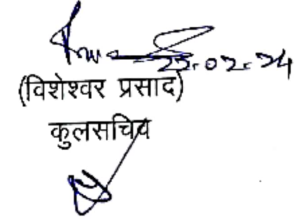 23.02.24
(विशेश्वर प्रसाद)
कुलसचिव